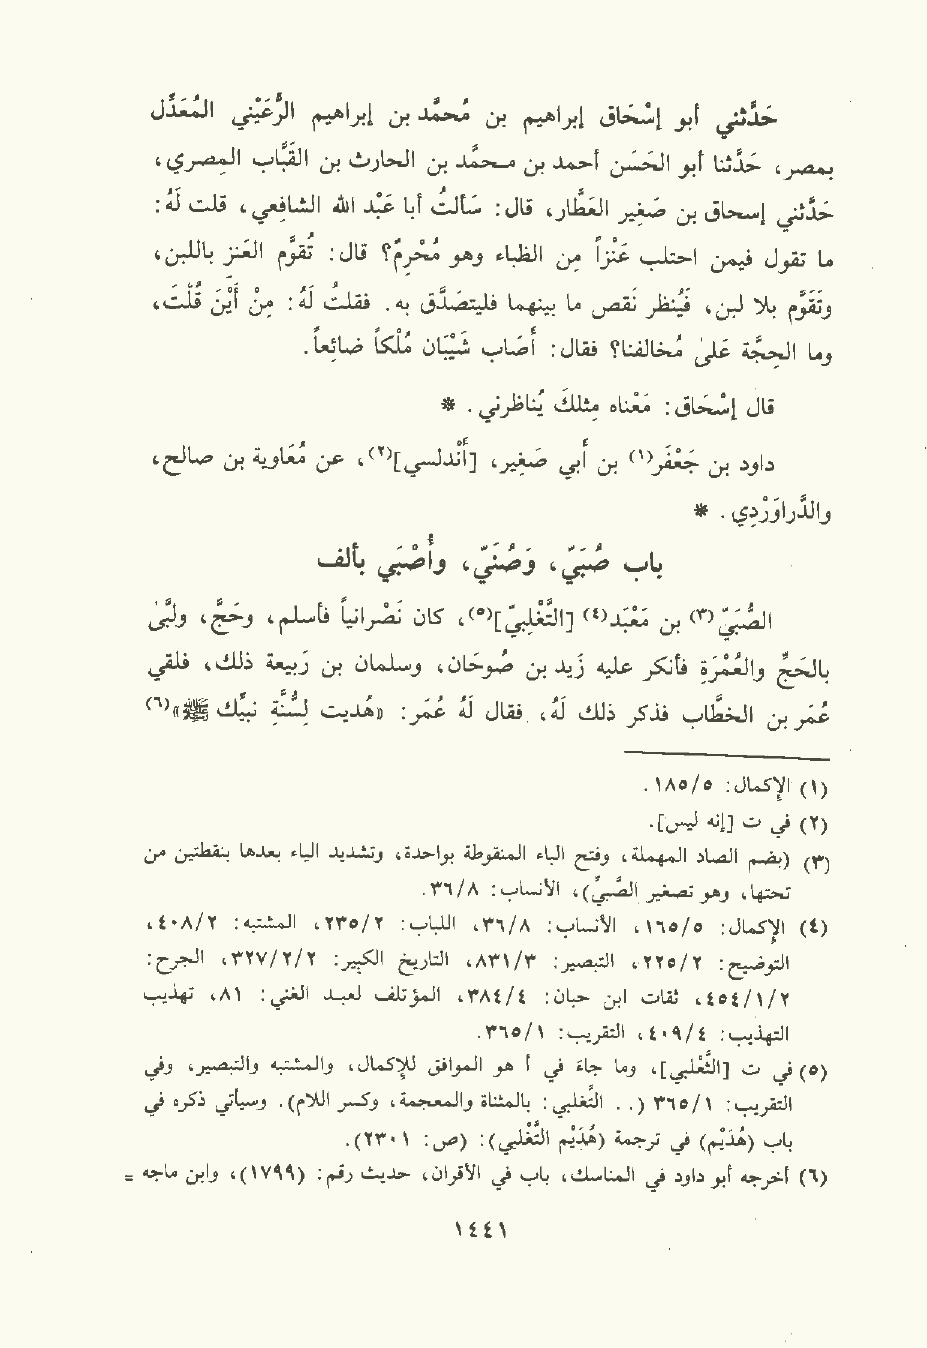 حَدَّثني أبو إسْحَاق إبراهيم بن مُحمَّد بن إبراهيم الرُّعَيْني المُعَدَّل
بمصر، حَدَّثنا أبو الحَسَن أحمد بن محمَّد بن الحارث بن القَبَّاب المِصري،
حَدَّثني إسحاق بن صَغِير العَطَّار، قال: سَألتُ أبا عَبْد الله الشافِعي، قلت لَهُ:
ما تقول فيمن احتلب عَنْزاً من الظباء وهو مُحْرِم؟ قال: تُقَوَّم العَنز باللبن،
وتُقَوَّم بلا لبن، فيُنظر نقص ما بينهما فليتصَدَّق به. فقلتُ لَهُ: مِنْ أيْنَ قلتَ،
وما الحجَّة عَلَىٰ مُخالفنا؟ فقال: أصَاب شَيْبَان مُلْكاً ضَائِعاً.
قال إسْحَاق: مَعْناه مثلكَ يُناظرني. *
داود بن جَعْفَر(١) بن أبي صَغِير، [أنْدلسي](٢)، عن مُعَاوية بن صالح،
والدَّراوَرْدِي. *
باب صُبَيّ، وَضُنَيّ، وأُصْبَي بألف
الصُّبَيّ(٣) بن مَعْبَد(٤) [التَّغْلِبيّ](٥)، كان نَصْرانياً فأسلم، وحَجَّ، ولَبَّىٰ
بالحَجِّ والعُمْرَةِ فأنكر عليه زيد بن صُوحَان، وسلمان بن رَبيعة ذلك، فلقي
عُمَر بن الخطاب فذكر ذلك لَهُ، فقال لَهُ عُمَر: «هُديت لِسُنَّةِ نبيِّك ﷺ»(٦)
(١) الإكمال: ١٨٥/٥.
(٢) في ت [إنه ليس].
(٣) (بضم الصاد المهملة، وفتح الباء المنقوطة بواحدة، وتشديد الياء بعدها بنقطتين من
تحتها، وهو تصغير الصبيّ)، الأنساب: ٣٦/٨.
(٤) الإكمال: ١٦٥/٥، الأنساب: ٣٦/٨، اللباب: ٢٣٥/٢، المشتبه: ٤٠٨/٢،
التوضيح: ٢٢٥/٢، التبصير: ٨٣١/٣، التاريخ الكبير: ٣٢٧/٢/٢، الجرح:
٤٥٤/١/٢، ثقات ابن حبان: ٣٨٤/٤، المؤتلف لعبد الغني: ٨١، تهذيب
التهذيب: ٤٠٩/٤، التقريب: ٣٦٥/١.
(٥) في ت [الثَّعْلبي]، وما جاء في أ هو الموافق للإكمال، والمشتبه والتبصير، وفي
التقريب: ٣٦٥/١ (.. التَغلبي: بالمثناة والمعجمة، وكسر اللام). وسيأتي ذكره في
باب (هُذَيْم) في ترجمة (هُذَيْم التَّغْلبي): (ص: ٢٣٠١).
(٦) أخرجه أبو داود في المناسك، باب في الأقران، حديث رقم: (١٧٩٩)، وابن ماجه =
١٤٤١